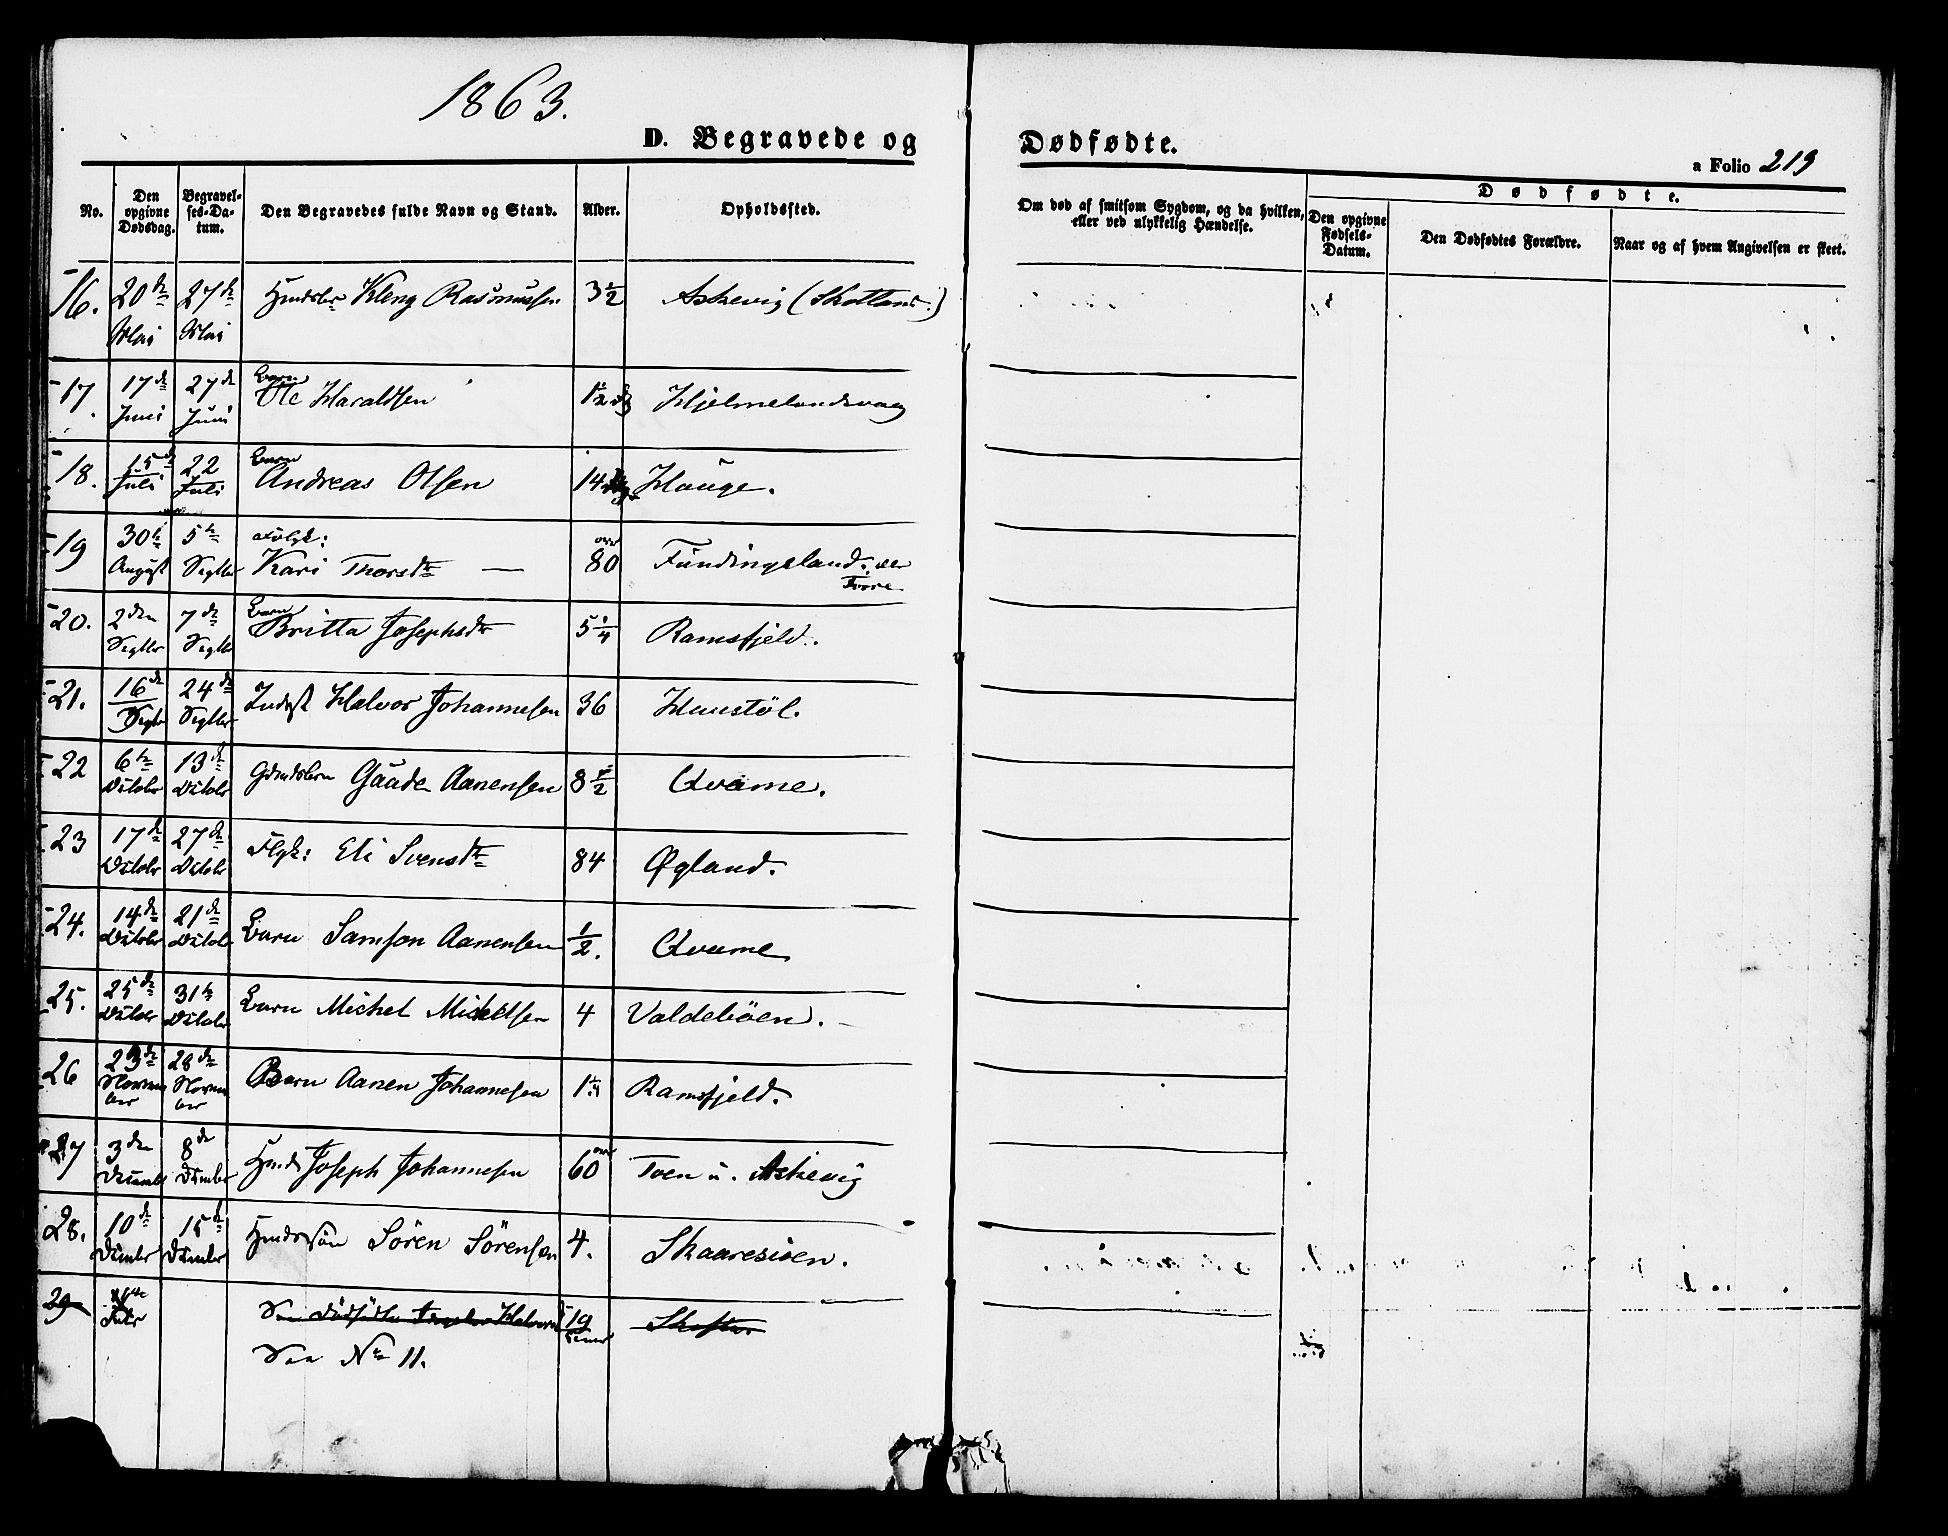 1863.
D. Begravede og Dødfødte.
a Folio 219
No. Den opgivne Dødsdag. Begravelses-Datum. Den Begravedes fulde Navn og Stand. Alder. Opholdssted. Om død af smitsom Sygdom, og da hvilken, eller ved ulykkelig Hændelse. Dødfødte. Den opgivne Fødsels-Datum. Den Dødfødtes Forældre. Naar og af hvem Angivelsen er skeet.
16. 20de Mai 27de Mai Kleng Rasmussen 3 1/2 Askevig (Skotland.)
17. 17de Juni 27de Juni Barn Ole Haraldsen 1 1/2 Hjelmelandsvaag
18. 15de Juli 22 Juli Barn Andreas Olsen 14 Hauge.
19 30te August 5te Septbr Kari Thorsdtr — over 80 Fundingsland,
20. 2den Septbr 7de Septbr Barn Britta Josephsdtr 5 1/4 Ramsfjeld.
21. 16de Septbr 24de Septbr Inderst Halvor Johannesen 36 Haustøl.
22 6te Octobr 13de Octobr Gaade Aanensen 8 1/2 Qvame.
23 17de Octobr 27de Octobr Flgk: Eli Svensdtr 84 Øgland.
24. 14de Octobr 21de Octobr Barn Samson Aanensen 1/2. Qvame
25. 25de Octobr 31te Octobr Barn Michel Michelsen 4 Valdebøen.
26 23de November 28de November Barn Aanen Johannesen 1 1/4 Ramsfjeld.
27 3den Decembr 8de Decembr Joseph Johannesen over 60 Tøen u. Askevig
28. 10de Decembr 15de Decembr Søren Sørensen 4. Skaaresioen.
29 19
No 11.